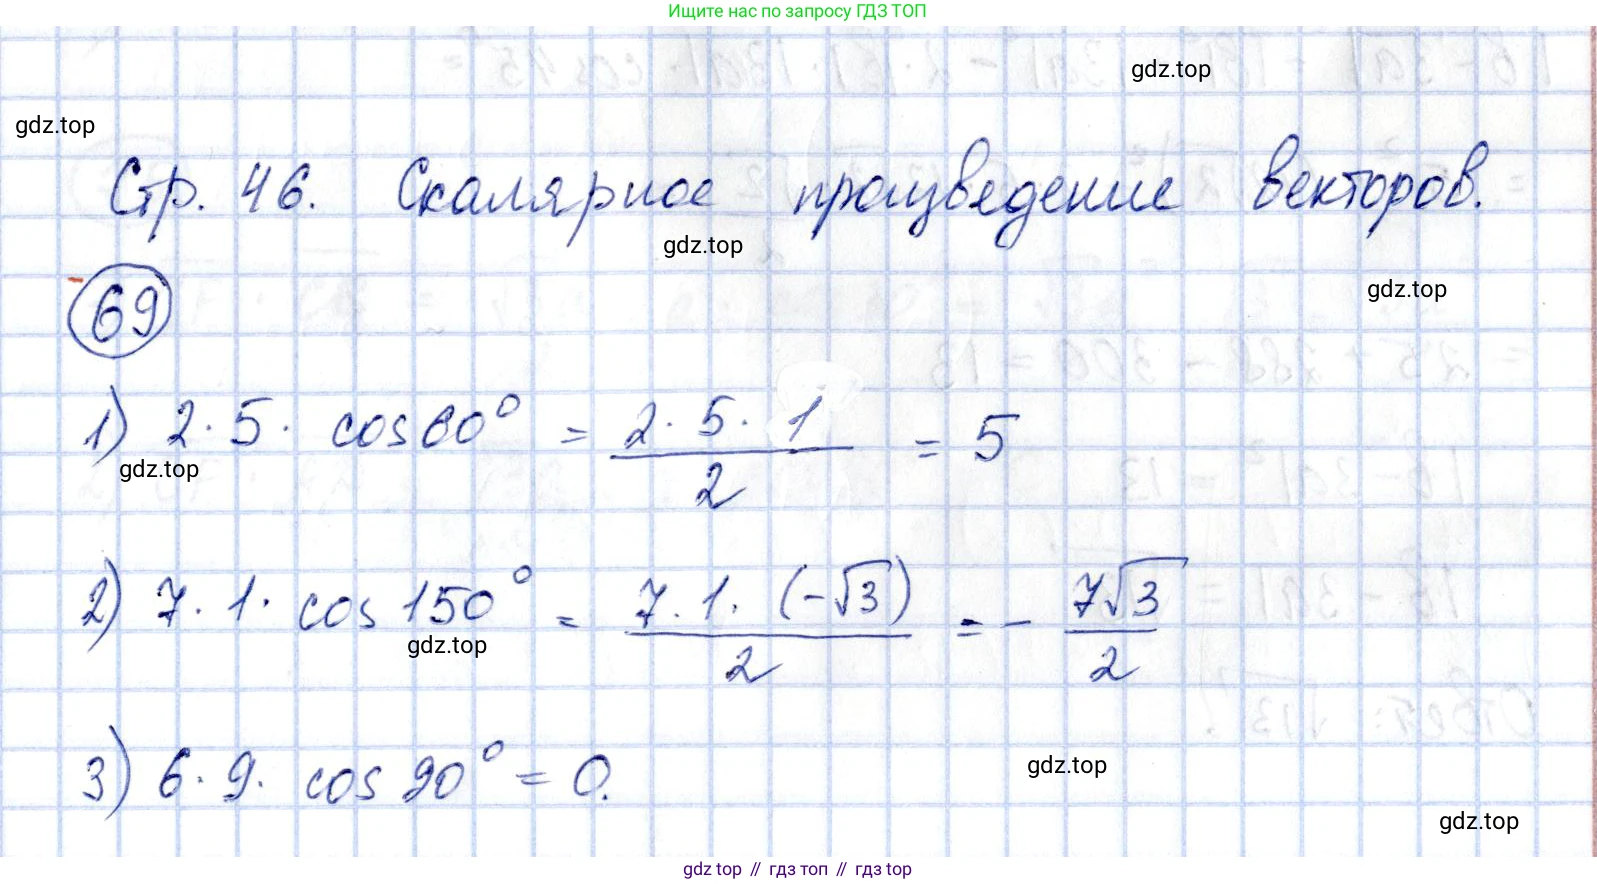 Ищите нас по запросу ГДЗ ТОП
gdz.top
gdz.top
Стр. 46. Скалярное произведение векторов.
gdz.top
gdz.top
69
1) 2 · 5 · cos 60° = 2 · 5 · 1 / 2 = 5
gdz.top
2) 7 · 1 · cos 150° = 7 · 1 · (-√3) / 2 = - 7√3 / 2
gdz.top
3) 6 · 9 · cos 90° = 0.
gdz.top
gdz.top
gdz top // гдз топ // gdz top